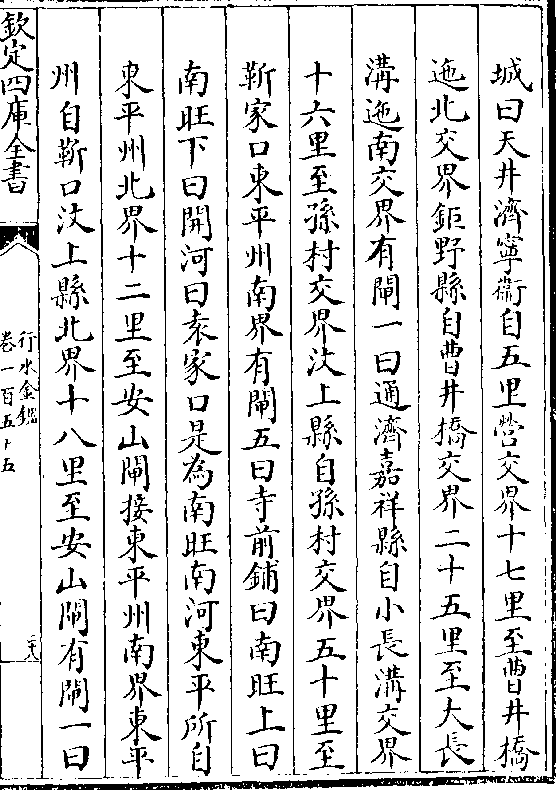 城曰天井濟寧衞自五里營交界十七里至曹井橋
迤北交界鉅野縣自曹井橋交界二十五里至大長
溝迤南交界有閘一曰通濟嘉祥縣自小長溝交界
十六里至孫村交界汶上縣自孫村交界五十里至
靳家口東平州南界有閘五曰寺前鋪曰南旺上曰
南旺下曰開河曰袁家口是為南旺南河東平所自
東平州北界十二里至安山閘接東平州南界東平
州自靳口汶上縣北界十八里至安山閘有閘一曰
欽定四庫全書
行水金鑑
卷一百五十五
二十八